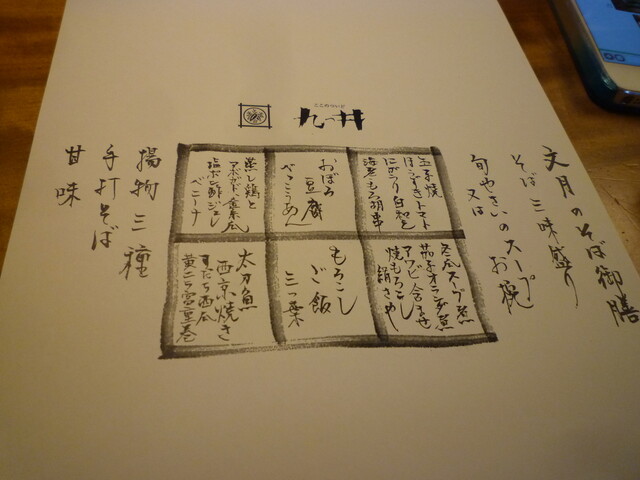 ここのついど
九つ井
文月のそば御膳
そば三味盛り
旬やさいのスープ
又は お椀
玉子焼
ほしずきトマト
にがうり白和え
海老もろ胡串
おぼろ
豆腐
べっこうあん
蒸し鶏と
アボガド、金糸瓜
塩ポン酢ジュレ
ベニーナ
冬瓜スープ煮
茄子オランダ煮
アワビ含ませ
焼もろこし
絹さや
もろこし
ご飯
三つ葉
太刀魚
西京焼き
すだち西瓜
黄ニラ雲豆巻
揚物三種
手打そば
甘味